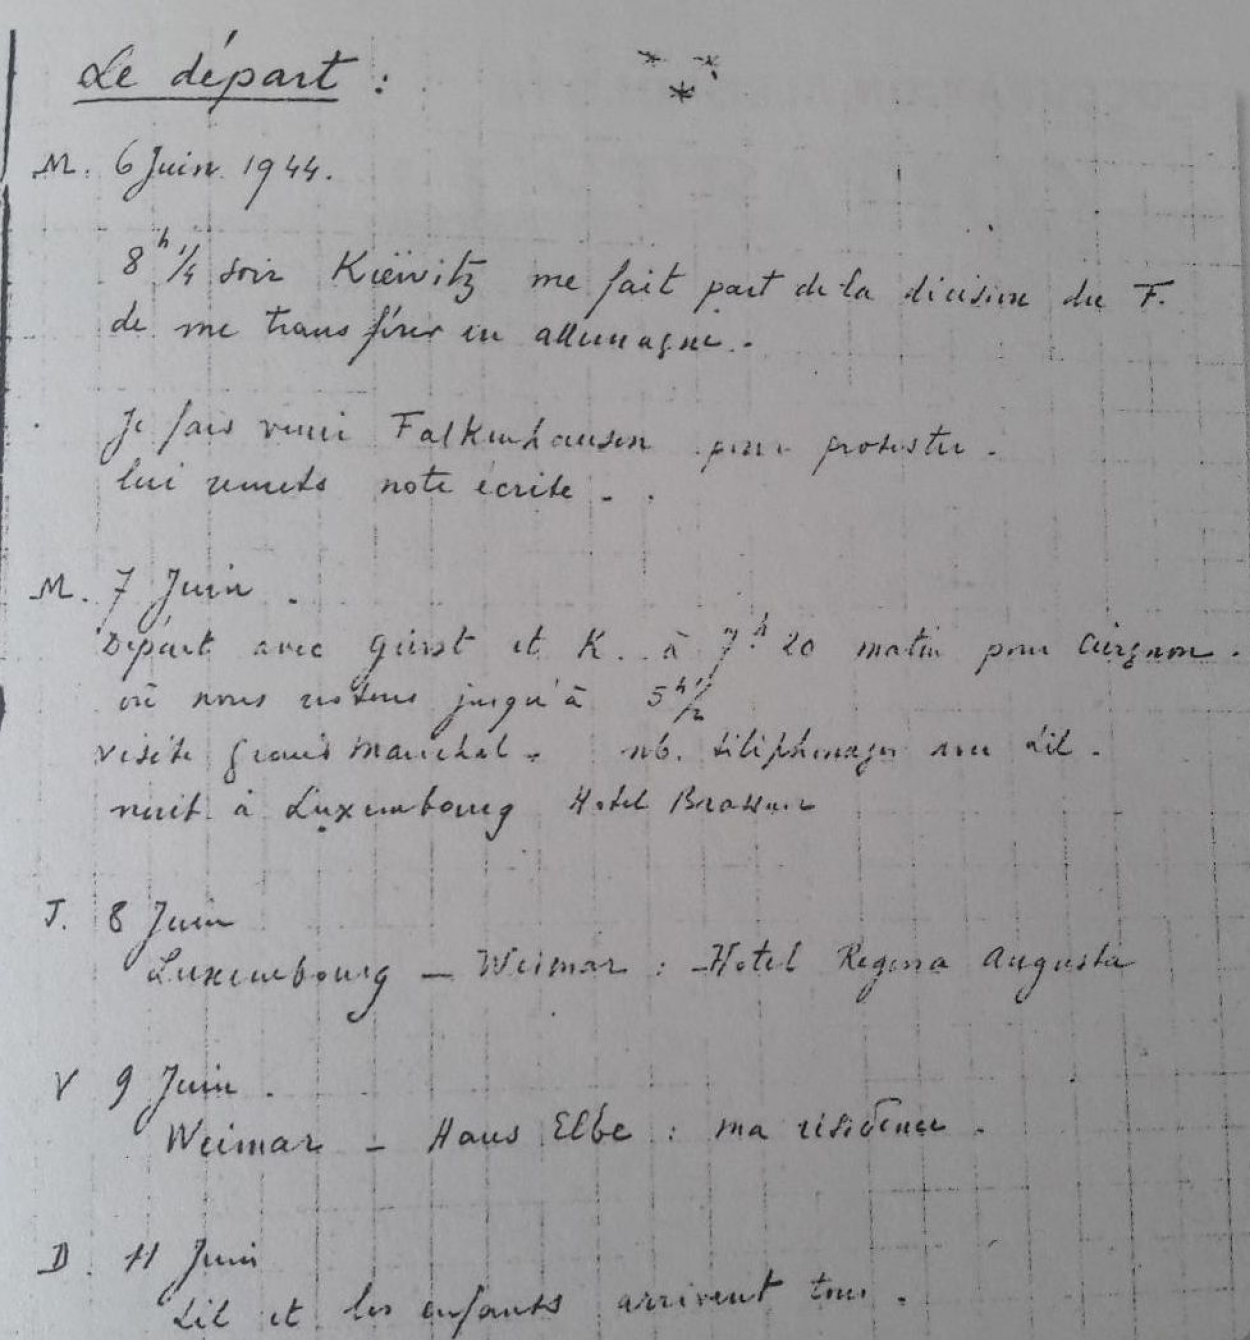 Le départ :
M. 6 Juin 1944.
8 h 1/4 soir Kiewitz me fait part de la décision du F.
de me transférer en allemagne.
Je fais venir Falkenhausen pour protester.
lui remets note écrite.
M. 7 Juin.
Départ avec gierst et K. à 7 h 20 matin pour Ciergnon.
où nous restons jusqu'à 5 h 1/2
visite grand Maréchal. nb. téléphonages avec Lil.
nuit à Luxembourg Hotel Brasseur
J. 8 Juin
Luxembourg – Weimar : Hotel Regina Augusta
V 9 Juin.
Weimar – Haus Elbe : ma résidence.
D. 11 Juin
Lil et les enfants arrivent tous.